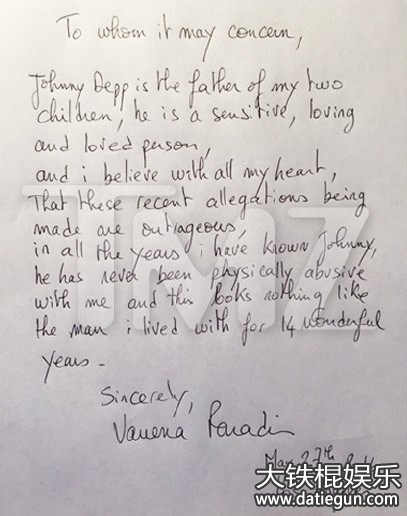 To whom it may concern,
Johnny Depp is the father of my two
children, he is a sensitive, loving
and loved person,
and i believe with all my heart,
that these recent allegations being
made are outrageous,
in all the years i have known Johnny,
he has never been physically abusive
with me and this looks nothing like
the man i lived with for 14 wonderful
years -
Sincerely,
Vanessa Paradis
May 27th
TMZ
大铁棍娱乐
www.datiegun.com